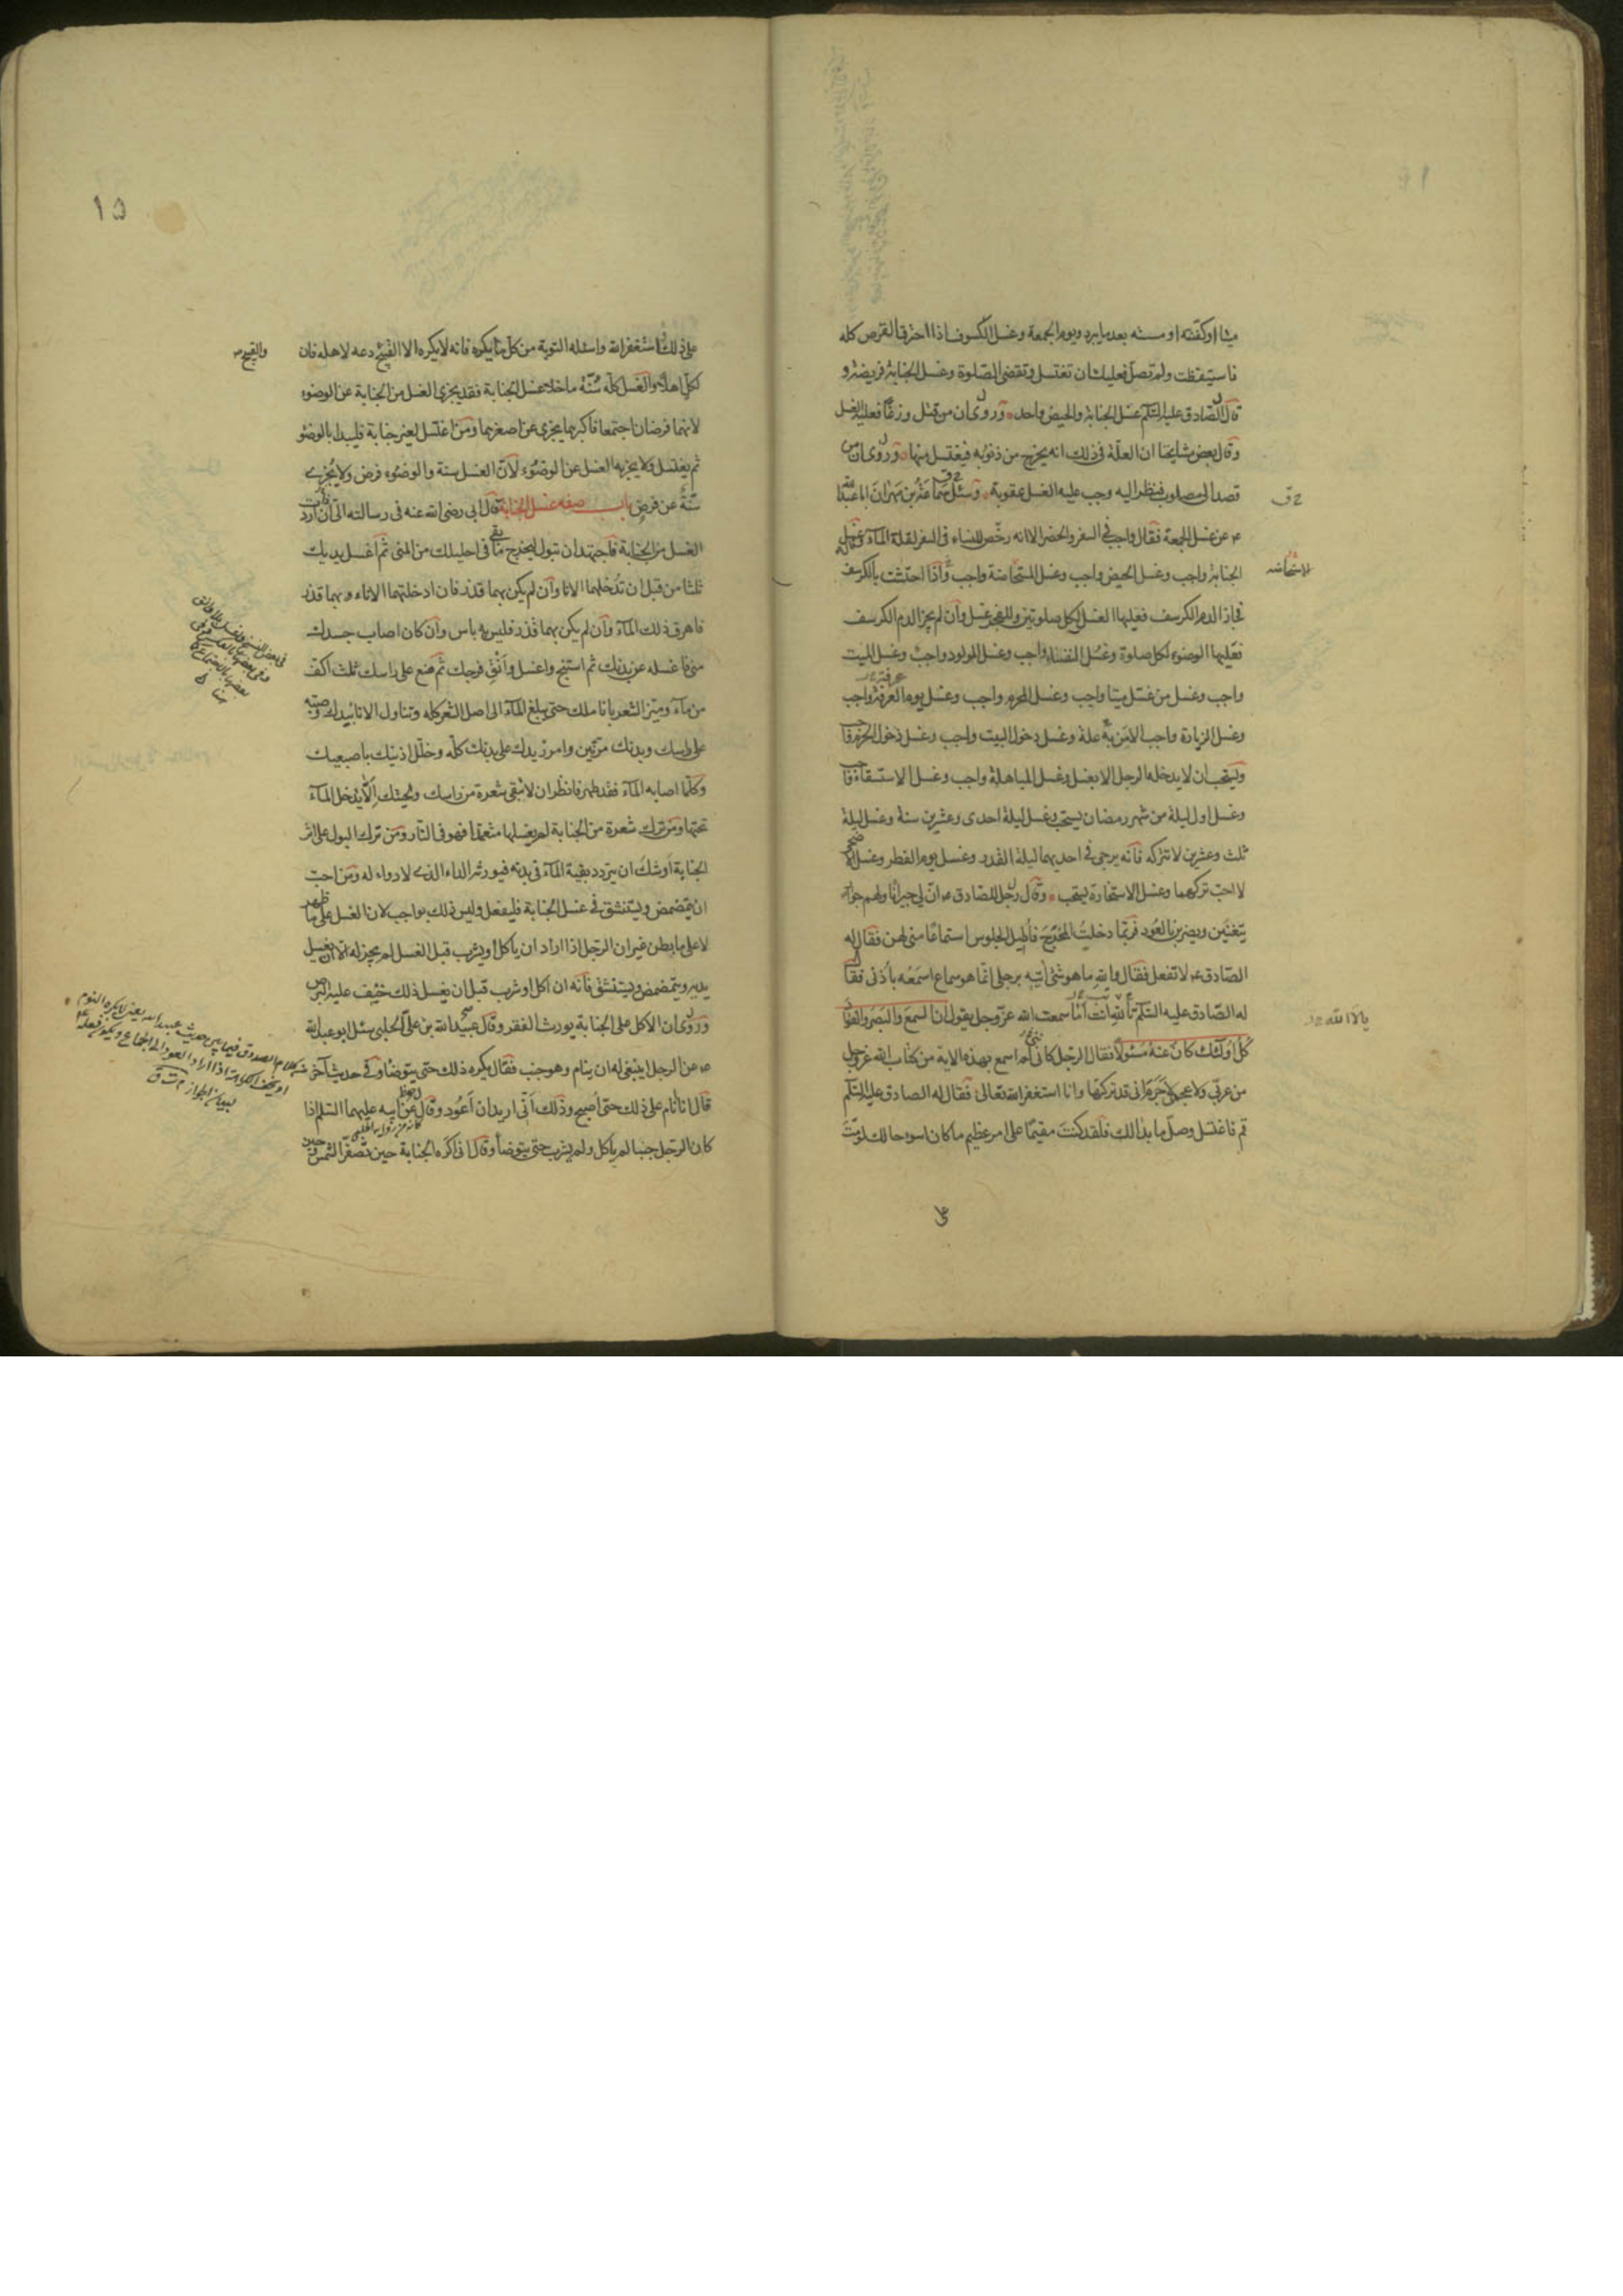 ميتا او كفنته او مسته بعد ما يبرد ويوم الجمعة وغسل الكسوف اذا احترق القرص كله
فاستيقظت ولم تصلّ فعليك ان تغتسل وتقضى الصّلوة وغسل الجنابة فريضة و
قال الصّادق عليه السّلم غسل الجنابة والحيض واحد وروى ان من قتل وزغًا فعليه الغسل
وقال بعض مشايخنا ان العلّة فى ذلك انه يخرج من ذنوبه فيغتسل منها وروى ان من
قصد الى مصلوب فنظر اليه وجب عليه الغسل عقوبة وسئل سماعة بن مهران ابا عبدالله
ع عن غسل الجمعة فقال واجب فى السفر والحضر الا انه رخّص للنساء فى السفر لقلة المآء وغسل
الجنابة واجب وغسل الحيض واجب وغسل المستحاضة واجب واذا احتشت بالكرسف
فجاز الدم الكرسف فعليها الغسل لكل صلوتين وللفجر غسل وان لم يجز الدم الكرسف
فعليها الوضوء لكل صلوة وغسل النفساء واجب وغسل المولود واجب وغسل الميت
واجب وغسل من غسّل ميتا واجب وغسل المحرم واجب وغسل يوم العرفة واجب
وغسل الزيارة واجب الا من به علة وغسل دخول البيت واجب وغسل دخول الحرم واجب
ويستحب ان لا يدخله الرجل الا بغسل وغسل المباهلة واجب وغسل الاستسقاء واجب
وغسل اول ليلة من شهر رمضان يستحب وغسل ليلة احدى وعشرين سنة وغسل ليلة
ثلث وعشرين لا تتركه فانه يرجى فى احديهما ليلة القدر وغسل يوم الفطر وغسل الاضحى
لا احب تركهما وغسل الاستخارة يستحب وقال رجل للصادق ع انّ لى جيرانًا ولهم جوار
يتغنّين ويضربن بالعُود فربّما دخلتُ المخرج فاُطيل الجلوس استماعًا منى لهن فقال له
الصّادق ع لا تفعل فقال والله ما هو شئ اتيه برجلى انّما هو سماع اسمعه باُذنى فقال
له الصّادق عليه السّلم تالله انت اما سمعت الله عزّ وجل يقول ان السمع والبصر والفؤاد
كُلّ اولئك كان عنه مسئولًا فقال الرجل كانى لم اسمع بهذه الاية من كتاب الله عز وجل
من عربى ولا عجمى لا جرم انى قد تركتها وانا استغفر الله تعالى فقال له الصادق عليه السّلم
قم فاغتسل وصلّ ما بدا لك فلقد كنت مقيمًا على امر عظيم ما كان اسوء حالك لو متّ
ح ق
الاستحاضه
على
١٥
على ذلك استغفر الله واسئله التوبة من كل ما يكره فانه لا يكره الا القبيح دعه لاهله فان
والقبيح
لكلّ اهلًا والغسل كلّه سُنّة ما خلا غسل الجنابة فقد يجزى الغسل من الجنابة عن الوضوء
لانهما فرضان اجتمعا فاكبرهما يجزى عن اصغرهما ومن اغتسل لغير جنابة فليبدا بالوضو
ثم يغتسل ولا يجزيه الغسل عن الوضوء لانّ الغسل سنة والوضوء فرض ولا يُجزى
سنّة عن فرض باب صفه غسل الجنابة قال ابى رضى الله عنه فى رسالته الىّ اذا اردت
الغسل من الجنابة فاجتهد ان تبول ليخرج ما بقى فى احليلك من المنى ثم اغسل يديك
ثلثا من قبل ان تُدخلهما الانا وان لم يكن بهما قذر فان ادخلتهما الاناء وبهما قذر
فاهرق ذلك المآء وان لم يكن بهما قذر فليس به باس وان كان اصاب جسدك
منى فاغسله عن بدنك ثم استنج واغسل وانق فرجك ثم ضع على راسك ثلث اكف
من مآء وميّز الشعر باناملك حتى يبلغ المآء الى اصل الشعر كله وتناول الانا بيدك وصبّه
على راسك وبدنك مرّتين وامرر يدك على بدنك كلّه وخلّل اذنيك باصبعيك
وكلّما اصابه المآء فقد طهر فانظر ان لا تبقى شعرة من راسك ولحيتك الا يدخل المآء
تحتها ومن ترك شعرة من الجنابة لم يغسلها متعمدا فهو فى النّار ومن ترك البول على اثر
الجنابة اوشك ان يتردد بقية المآء فى بدنه فيورثه الداء الذى لا دواء له ومن احب
ان يتمضمض ويستنشق فى غسل الجنابة فليفعل وليس ذلك بواجب لان الغسل على ما ظهر
لا على ما بطن غير ان الرجل اذا اراد ان ياكل او يشرب قبل الغسل لم يجز له الا ان يغسل
يديه ويتمضمض ويستنشق فانه ان اكل او شرب قبل ان يغسل ذلك خيف عليه البرص
وروى ان الاكل على الجنابة يورث الفقر وقال عبيدالله بن على الحلبى سئل ابو عبدالله
ع عن الرجل اينبغى له ان ينام وهو جنب فقال يكره ذلك حتى يتوضا وفى حديث آخر
قال انا انام على ذلك حتى اُصبح وذلك اَنّى اريد ان اَعُود وقال عن ابيه عليهما السّلم اذا
كان الرجل جنبا لم ياكل ولم يشرب حتى يتوضأ وقال انى اكره الجنابة حين تصفرّ الشمس وحين